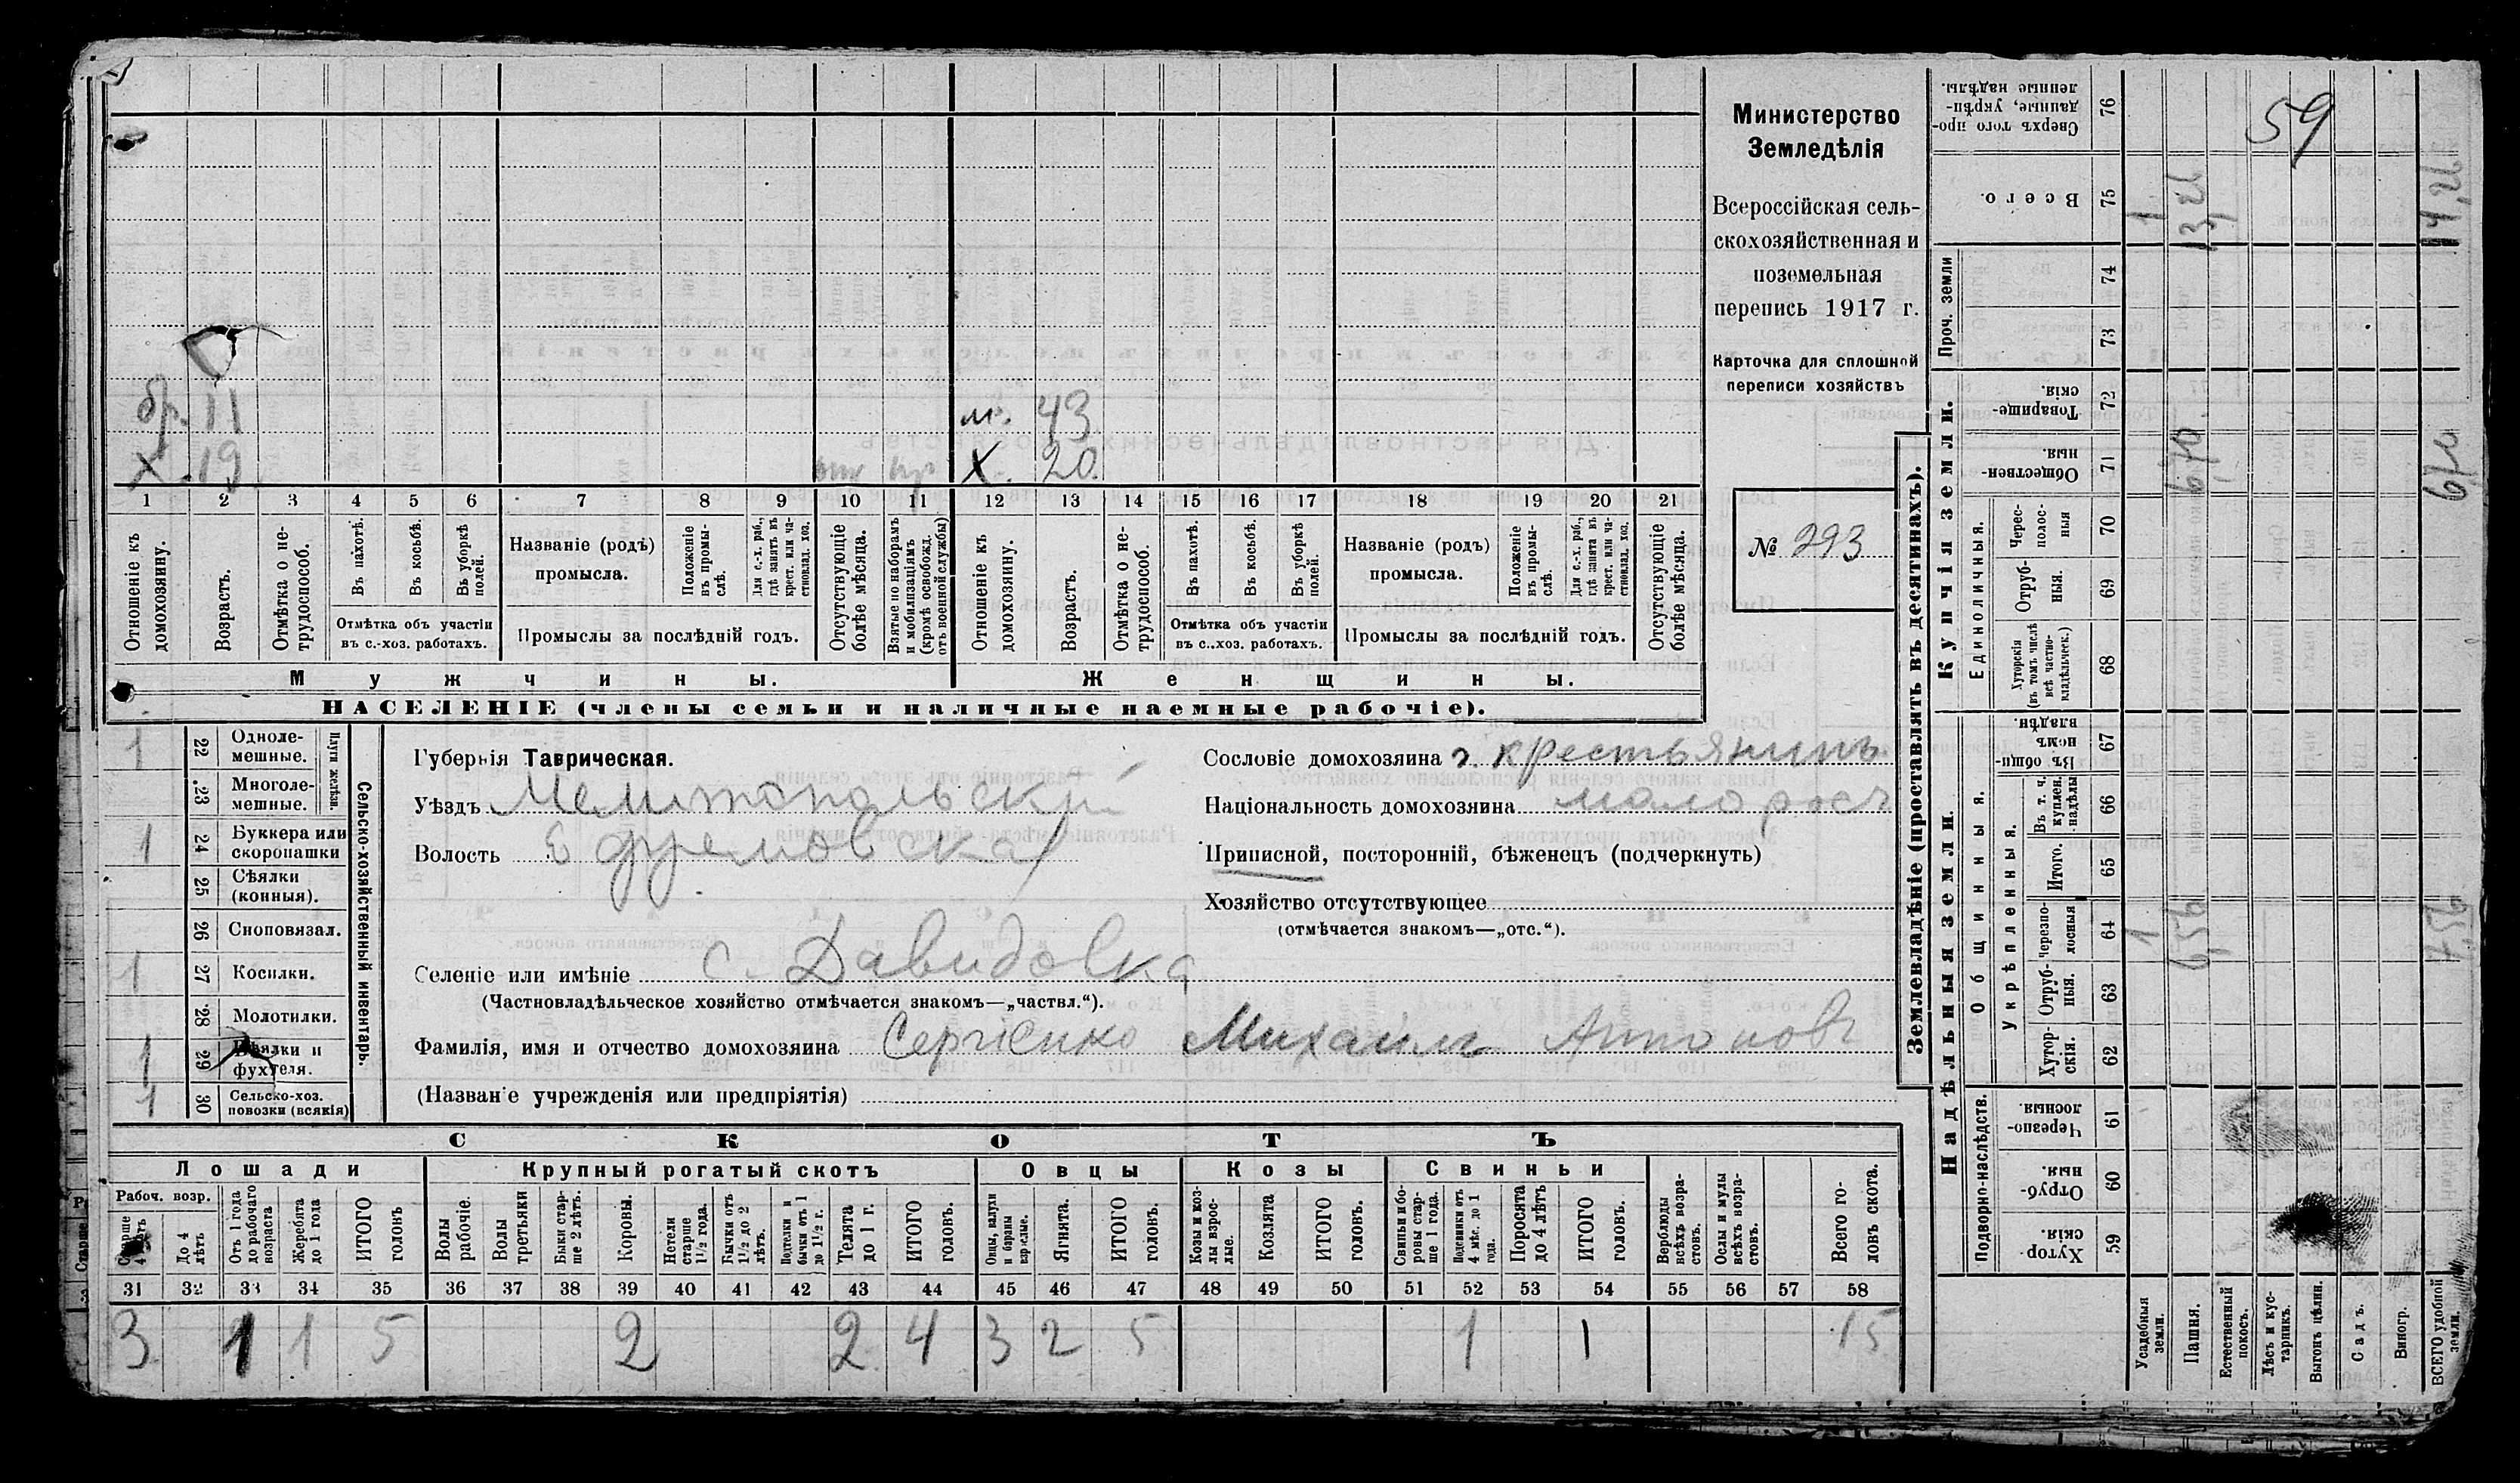 бр. 11 м. 43
Х. 19. Х. 20.
1 2 3 4 5 6 7 8 9 10 11 12 13 14 15 16 17 18 19 20 21
Отношеніе къ домохозяину.
Возрастъ.
Отмѣтка о нетрудоспособ.
Въ пахотѣ.
Въ косьбѣ.
Въ уборкѣ полей.
Отмѣтка объ участіи
въ с.-хоз. работахъ.
Названіе (родъ)
промысла.
Положеніе въ промыслѣ.
Для с.-х. раб., гдѣ занятъ въ крест. или частновлад. хоз.
Промыслы за послѣдній годъ.
Отсутствующіе болѣе мѣсяца.
Взятые по наборамъ и мобилизаціямъ (кромѣ освобожд. отъ военной службы)
Отношеніе къ домохозяину.
Возрастъ.
Отмѣтка о нетрудоспособ.
Въ пахотѣ.
Въ косьбѣ.
Въ уборкѣ полей.
Отмѣтка объ участіи
въ с..хоз. работахъ.
Названіе (родъ)
промысла.
Положеніе въ промыслѣ.
Для с.-х. раб., гдѣ занята въ крест. или частновлад. хоз.
Промыслы за послѣдній годъ.
Отсутствующіе болѣе мѣсяца.
Мужчины. Женщины.
НАСЕЛЕНІЕ (члены семьи и наличные наемные рабочіе).
Министерство
Земледѣлія
Всероссійская сель-
скохозяйственная и
поземельная
перепись 1917 г.
Карточка для сплошной
переписи хозяйствъ
№ 293
Сельско-хозяйственный инвентарь.
Плуги желѣзн.
1 22 Одноле-
мешные.
23 Многоле-
мешные.
1 24 Буккера или
скоропашки
25 Сѣялки
(конныя).
26 Сноповязал.
1 27 Косилки.
28 Молотилки.
1 29 Вѣялки и
фухтеля.
1 30 Сельско-хоз.
повозки (всякія)
Губернія Таврическая.
Уѣздъ Мелитопольскій
Волость Ефремовская
Селеніе или имѣніе с. Давидовка
(Частновладѣльческое хозяйство отмѣчается знакомъ—„частвл.“).
Фамилія, имя и отчество домохозяина Сергіенко Михаилъ Антоновъ
(Названіе учрежденія или предпріятія)
Сословіе домохозяина крестьянинъ
Національность домохозяина малоросъ
Приписной, посторонній, бѣженецъ (подчеркнуть)
Хозяйство отсутствующее
(отмѣчается знакомъ—„отс.“).
СКОТЪ
Лошади Крупный рогатый скотъ Овцы Козы Свиньи
Рабоч. возр.
Старше 4 лѣтъ
До 4 лѣтъ
Отъ 1 года до рабочаго возраста
Жеребята до 1 года
ИТОГО головъ
Волы рабочіе.
Волы третьяки
Быки старше 2 лѣтъ.
Коровы.
Нетели старше 1½ года.
Бычки отъ 1½ до 2 лѣтъ.
Подтелки и бычки отъ 1 до 1½ г.
Телята до 1 г.
ИТОГО головъ.
Овцы, валухи и бараны взрослые.
Ягнята.
ИТОГО головъ.
Козы и козлы взрослые.
Козлята
ИТОГО головъ.
Свиньи и боровы старше 1 года.
Подсвинки отъ 4 мѣс. до 1 года.
Поросята до 4 лѣтъ
ИТОГО головъ.
Верблюды всѣхъ возрастовъ.
Ослы и мулы всѣхъ возрастовъ.
Всего головъ скота.
31 32 33 34 35 36 37 38 39 40 41 42 43 44 45 46 47 48 49 50 51 52 53 54 55 56 57 58
3 1 1 5 2 2 4 3 2 5 1 1 15
Землевладѣніе (проставлять въ десятинахъ).
Надѣльныя земли.
Купчія земли.
Проч. земли
Подворно-наслѣдств.
Общинныя.
Укрѣпленныя.
Единоличныя.
Сверхъ того проданные, укрѣпленные надѣлы. 76
Всего. 75 1 13,26 14,26
74
73
Товарищескія. 72
Общественныя. 71 6,70 6,70
Чересполосныя 70
Отрубныя. 69
Хуторскія (въ томъ числѣ всѣ частновладѣльческ.) 68
Въ общинномъ владѣн. 67
Въ т. ч. куплен. надѣлы 66
Итого. 65
Черезполосныя 64 1 6,56 7,56
Отрубныя. 63
Хуторскія. 62
Черезполосныя. 61
Отрубныя. 60
Хуторскія. 59
Усадебныя земли.
Пашня.
Естественный покосъ.
Лѣсъ и кустарникъ.
Выгонъ цѣлин.
Садъ.
Виногр.
ВСЕГО удобной земли.
59